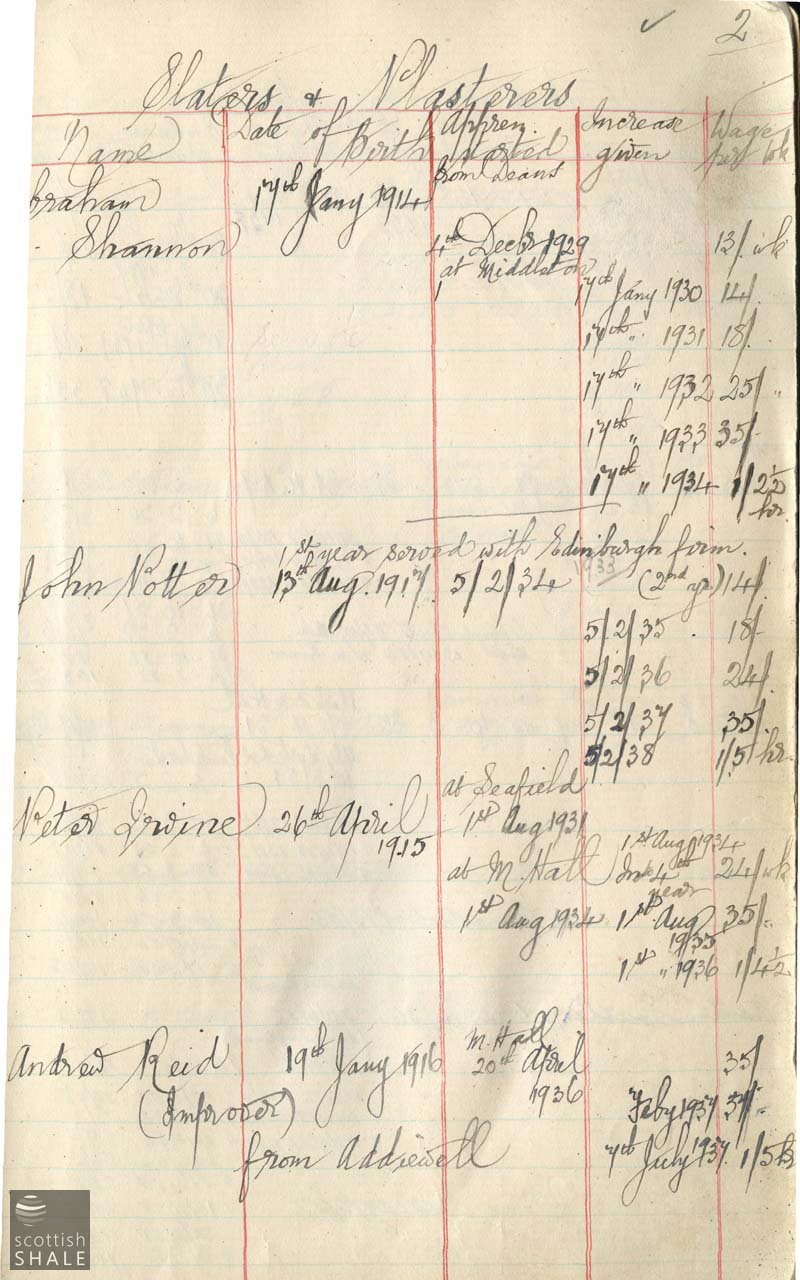 2
Slaters & Plasterers
Name Date of Birth Appren. started Increase given Wage per wk
from Deans
braham 17th Jany 1914
Shannon 4th Decbr 1929 13/. wk
at Middleton
17th Jany 1930 14/.
17th " 1931 18/.
17th " 1932 25/ "
17th " 1933 35/-
17th " 1934 1/2½ hr.
1st year served with Edinburgh firm.
1933
John Potter 13th Aug. 1917. 5/2/34 (2nd yr) 14/.
5/2/35 . 18/-
5/2/36 24/.
5/2/37 35/.
5/2/38 1/5 hr-
at Seafield
Peter Irvine 26th April 1915 1st Aug 1931
1st Aug 1934
at M. Hall 4th year 24/ wk
1st Aug 1934 1st Aug 1935 35/-
1st " 1936 1/4½
M. Hall
Andrew Reid 19th Jany 1916 20th April 1936 35/
(Improver) Feby 1937 37/-
from Addiewell 7th July 1937. 1/5 hr
scottish
SHALE